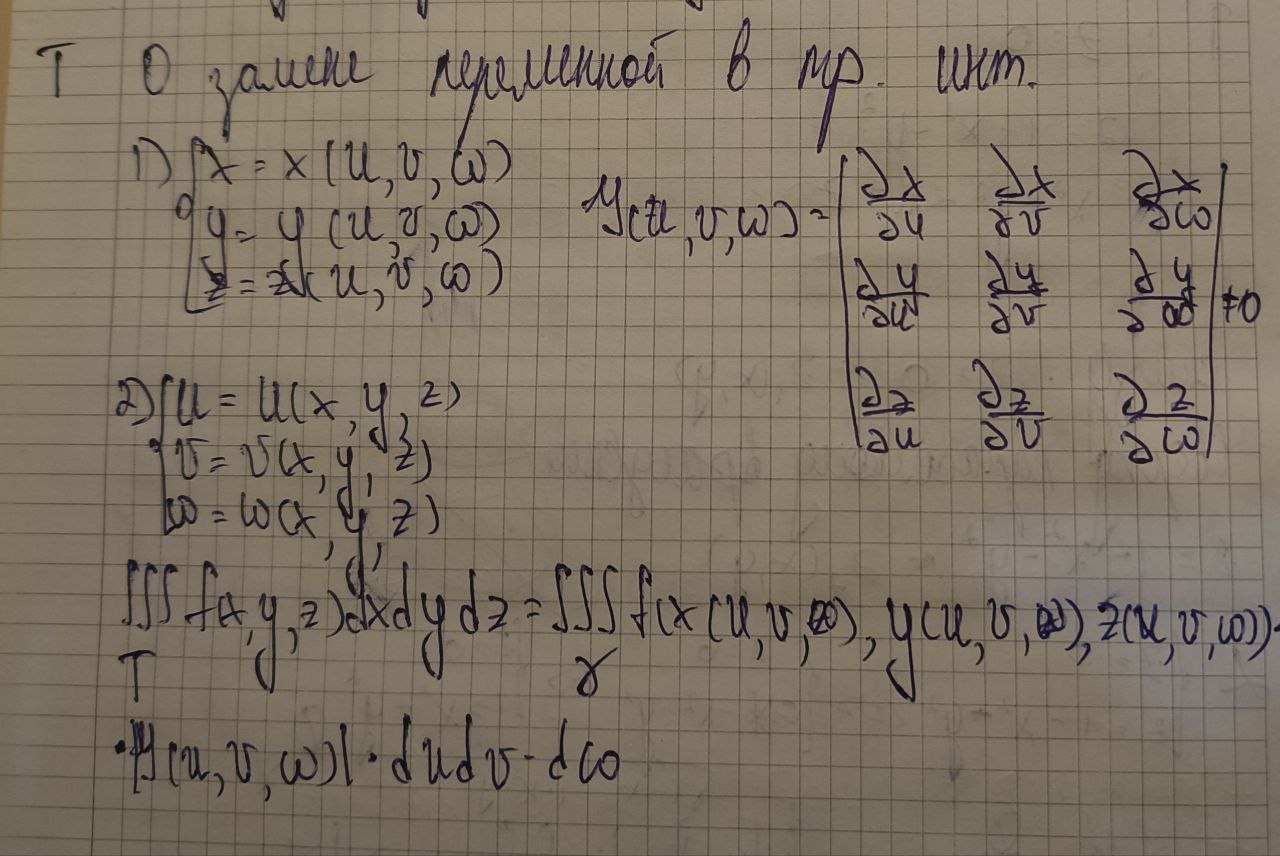 Т О замене переменной в тр. инт.
1) { x = x(u, v, ω)
y = y(u, v, ω)
z = z(u, v, ω)
J(u, v, ω) = | ∂x/∂u ∂x/∂v ∂x/∂ω
∂y/∂u ∂y/∂v ∂y/∂ω
∂z/∂u ∂z/∂v ∂z/∂ω | ≠ 0
2) { u = u(x, y, z)
v = v(x, y, z)
ω = ω(x, y, z)
∭ f(x, y, z) dx dy dz = ∭ f(x(u, v, ω), y(u, v, ω), z(u, v, ω)) ·
T γ
· |J(u, v, ω)| · du dv · dω